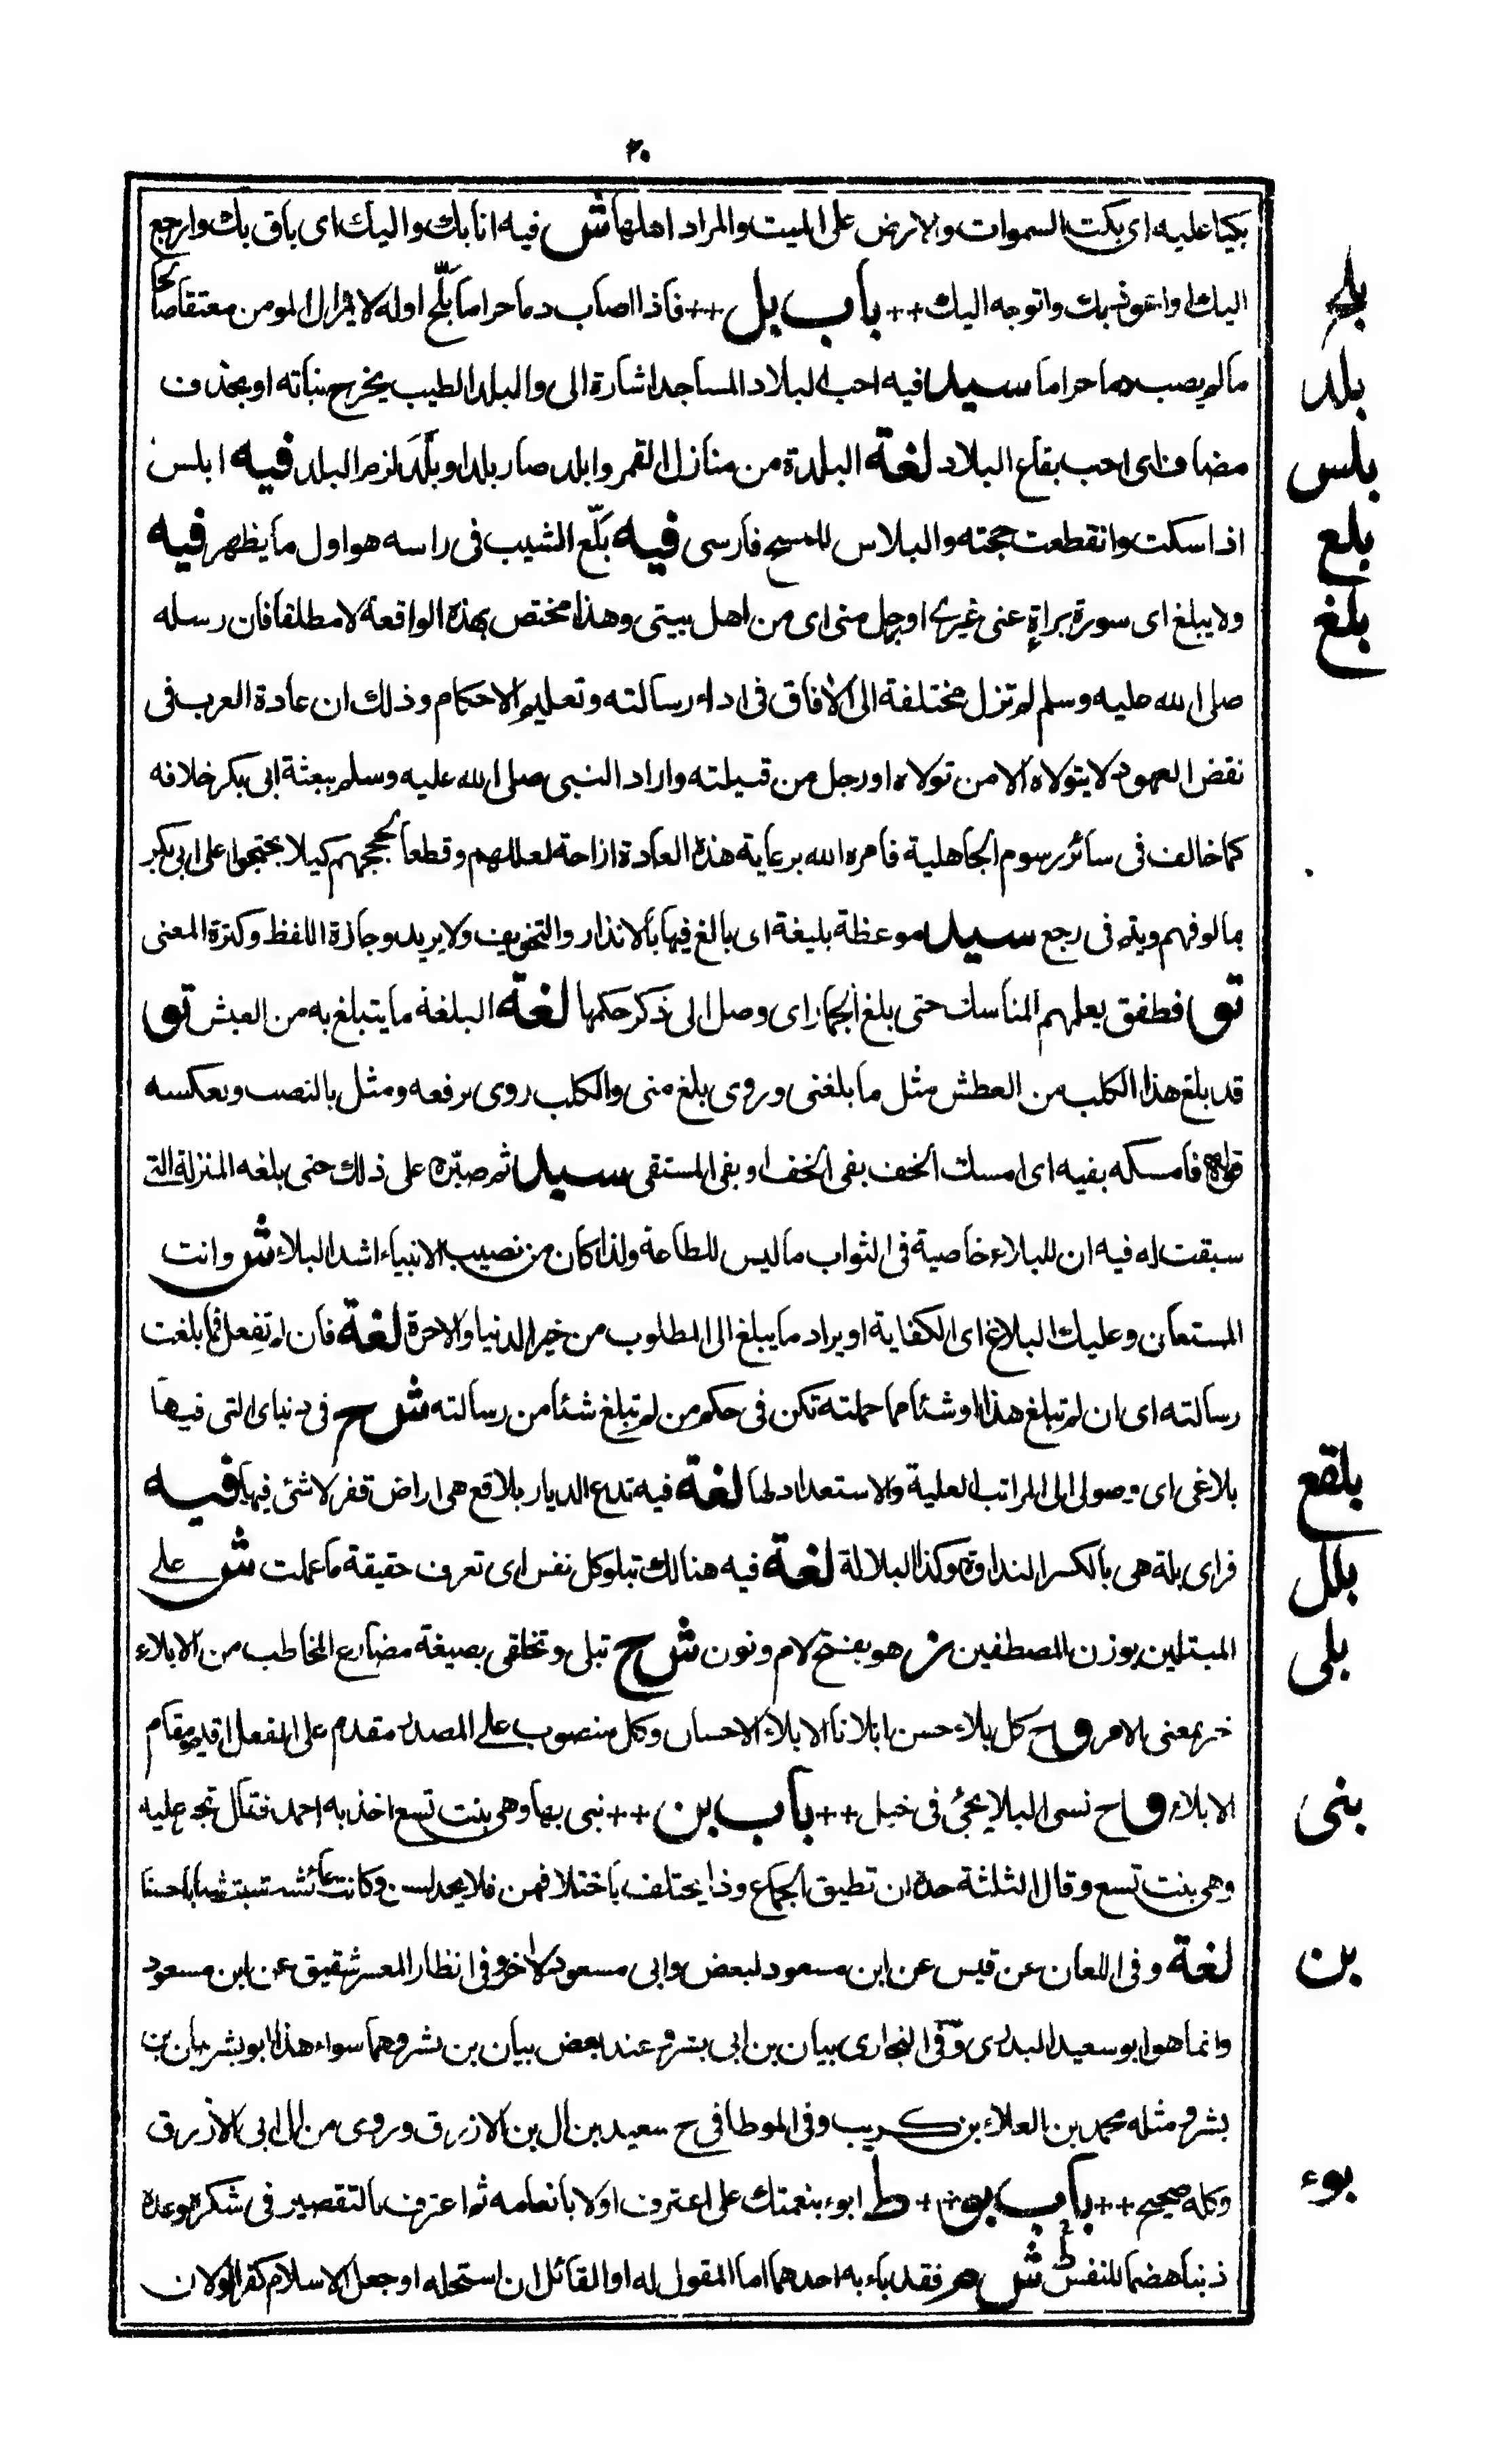 ٢٠
بكيا عليه اى بكت السموات والارض على الميت والمراد اهلها ش فيه انا بك واليك اى باق بك وارجع
اليك او اعوذ بك واتوجه اليك ++ باب بل ++ فاذا اصاب دما حراما بلّح اوله لا يزال المومن معتقا صالحا
بلح
ما لم يصب دما حراما سيد فيه احب البلاد المساجد اشارة الى والبلد الطيب يخرج نباته او بحذف
بلد
مضاف اى احب بقاع البلاد لغة البلدة من منازل القمر وابلد صار بلدا وبلّد لزم البلد فيه ابلس
بلس
اذا سكت وانقطعت حجته والبلاس للمسح فارسى فيه بلّع الشيب فى راسه هو اول ما يظهر فيه
بلع
ولا يبلغ اى سورة براة عنى غيرى او رجل منى اى من اهل بيتى وهذا مختص بهذه الواقعة لا مطلقا فان رسله
بلغ
صلى الله عليه وسلم لم تزل مختلفة الى الافاق فى اداء رسالته وتعليم الاحكام وذلك ان عادة العرب فى
نقض العهود لا يتولاه الا من تولاه او رجل من قبيلته واراد النبى صلى الله عليه وسلم ببعثة ابى بكر خلافه
كما خالف فى سائر رسوم الجاهلية فامره الله برعاية هذه العادة ازاحة لعللهم وقطعا لحججهم كيلا يحتجوا على ابى بكر
بمالوفهم ويتم فى رجع سيد موعظة بليغة اى بالغ فيها بالانذار والتخويف ولا يريد وجازة اللفظ وكثرة المعنى
تو فطفق يعلمهم المناسك حتى بلغ الجمار اى وصل الى ذكر حكمها لغة البلغة ما يتبلغ به من العيش تو
قد بلغ هذا الكلب من العطش مثل ما بلغنى وروى بلغ منى والكلب روى برفعه ومثل بالنصب وبعكسه
فامسكه بفيه اى امسك الخف بفى الخف او بفى المستقى سيد ثم صبّره على ذلك حتى بلغه المنزلة التى
سبقت له فيه ان للبلاء خاصية فى الثواب ما ليس للطاعة ولذا كان من نصيب الانبياء اشد البلاء ش وانت
المستعان وعليك البلاغ اى الكفاية او يراد ما يبلغ الى المطلوب من خير الدنيا والاخرة لغة فان لم تفعل فما بلغت
رسالته اى ان لم تبلغ هذا او شئا مما حملته تكن فى حكم من لم تبلغ شئا من رسالته ش ح فى دنياى التى فيها
بلاغى اى وصولى الى المراتب العلية والاستعداد لها لغة فيه تدع الديار بلاقع هى اراض قفر لا شئ فيها فيه
بلقع
فراى بلة هى بالكسر النداوة وكذا البلالة لغة فيه هنالك تبلو كل نفس اى تعرف حقيقة ما عملت ش على
بلل
المبتلين بوزن المصطفين ز هو بفتح لام ونون ش ح تبلى وتخلقى بصيغة مضارع المخاطب من الابلاء
بلى
خبر بمعنى الامر و ح كل بلاء حسن ابلانا الا بلاء الاحسان وكل منصوب على المصدر مقدم على المفعل اقيم مقام
الابلاء و ح نسى البلا يجئ فى خيل ++ باب بن ++ نبى بها وهى بنت تسع اخذ به احمد فقال تجمع عليه
بنى
وهى بنت تسع وقال الثلثة حده ان تطيق الجماع وذا يختلف باختلافهن فلا يحد لسن وكانت عائشة شبت شبابا حسنا
لغة وفى اللعان عن قيس عن ابن مسعود لبعض وابى مسعود لاخر وفى انظار المعسر شقيق عن ابن مسعود
بن
وانما هو ابو سعيد البدرى وفى البخارى بيان بن ابى بشر وعند بعض بيان بن بشر وهما سواء هذا ابو بشر بيان بن
بشر ومثله محمد بن العلاء بن كريب وفى الموطا فى ح سعيد بن ال بن الازرق وروى من ال ابى الازرق
وكله صحيح ++ باب بو ++ ط ابوء بنعمتك على اعترف اولا بانعامه ثم اعترف بالتقصير فى شكره وعده
بوء
ذنبا هضما للنفس ش م فقد باء به احدهما اما المقول له او القائل ان استحله او جعل الاسلام كفرا ولان